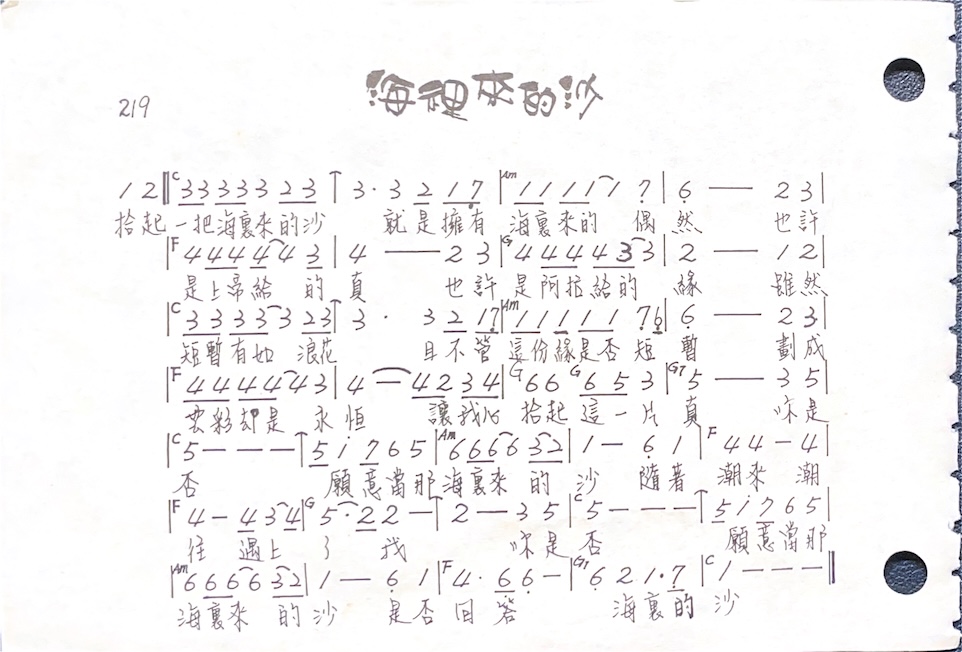 海裡來的沙
219
1 2 ‖C 3 3 3 3 3 2 3 | 3· 3 2 1 7 |Am 1 1 1 1 1 7 | 6 — 2 3 |
拾起一把海裏來的沙 就是擁有 海裏來的 偶然 也許
|F 4 4 4 4 4 3 | 4 — 2 3 |G 4 4 4 4 3 3 | 2 — 1 2 |
是上帝給 的 真 也許 是阿拉給的 緣 雖然
|C 3 3 3 3 3 2 3 | 3 · 3 2 1 7 |Am 1 1 1 1 1 7 6 | 6 — 2 3 |
短暫有如 浪花 且不管 這份緣是否 短 暫 劃成
|F 4 4 4 4 4 3 | 4 — 4 2 3 4 |G 6 6 G 6 5 3 |G7 5 — 3 5 |
雲彩却是 永恒 讓我心 拾起 這一片 真 你是
|C 5 — — — | 5 i 7 6 5 |Am 6 6 6 6 3 2 | 1 — 6 1 |F 4 4 — 4 |
否 願意當那 海裏來 的 沙 隨著 潮來 潮
|F 4 — 4 3 4 |G 5 · 2 2 — | 2 — 3 5 |C 5 — — — | 5 i 7 6 5 |
往 遇上 了 我 你是 否 願意當那
|Am 6 6 6 6 3 2 | 1 — 6 1 |F 4 · 6 6 — |G7 6 2 1 · 7 |C 1 — — — ‖
海裏來 的 沙 是否 回 答 海裏的 沙